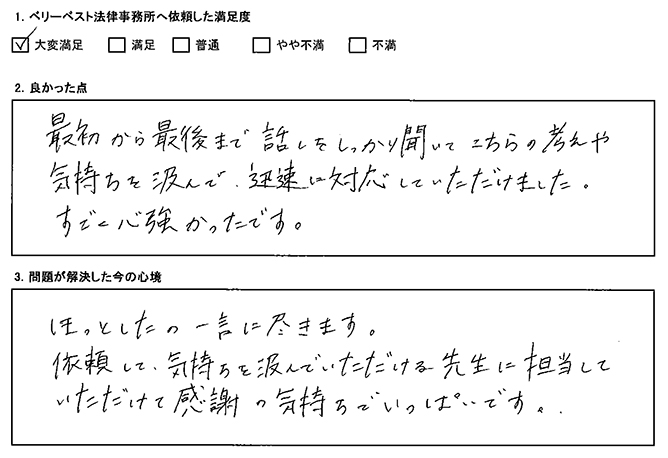 1. ベリーベスト法律事務所へ依頼した満足度
☑ 大変満足 □ 満足 □ 普通 □ やや不満 □ 不満
2. 良かった点
最初から最後まで話しをしっかり聞いてこちらの考えや
気持ちを汲んで、迅速に対応していただけました。
すごく心強かったです。
3. 問題が解決した今の心境
ほっとしたの一言に尽きます。
依頼して、気持ちを汲んでいただける先生に担当して
いただけて感謝の気持ちでいっぱいです。